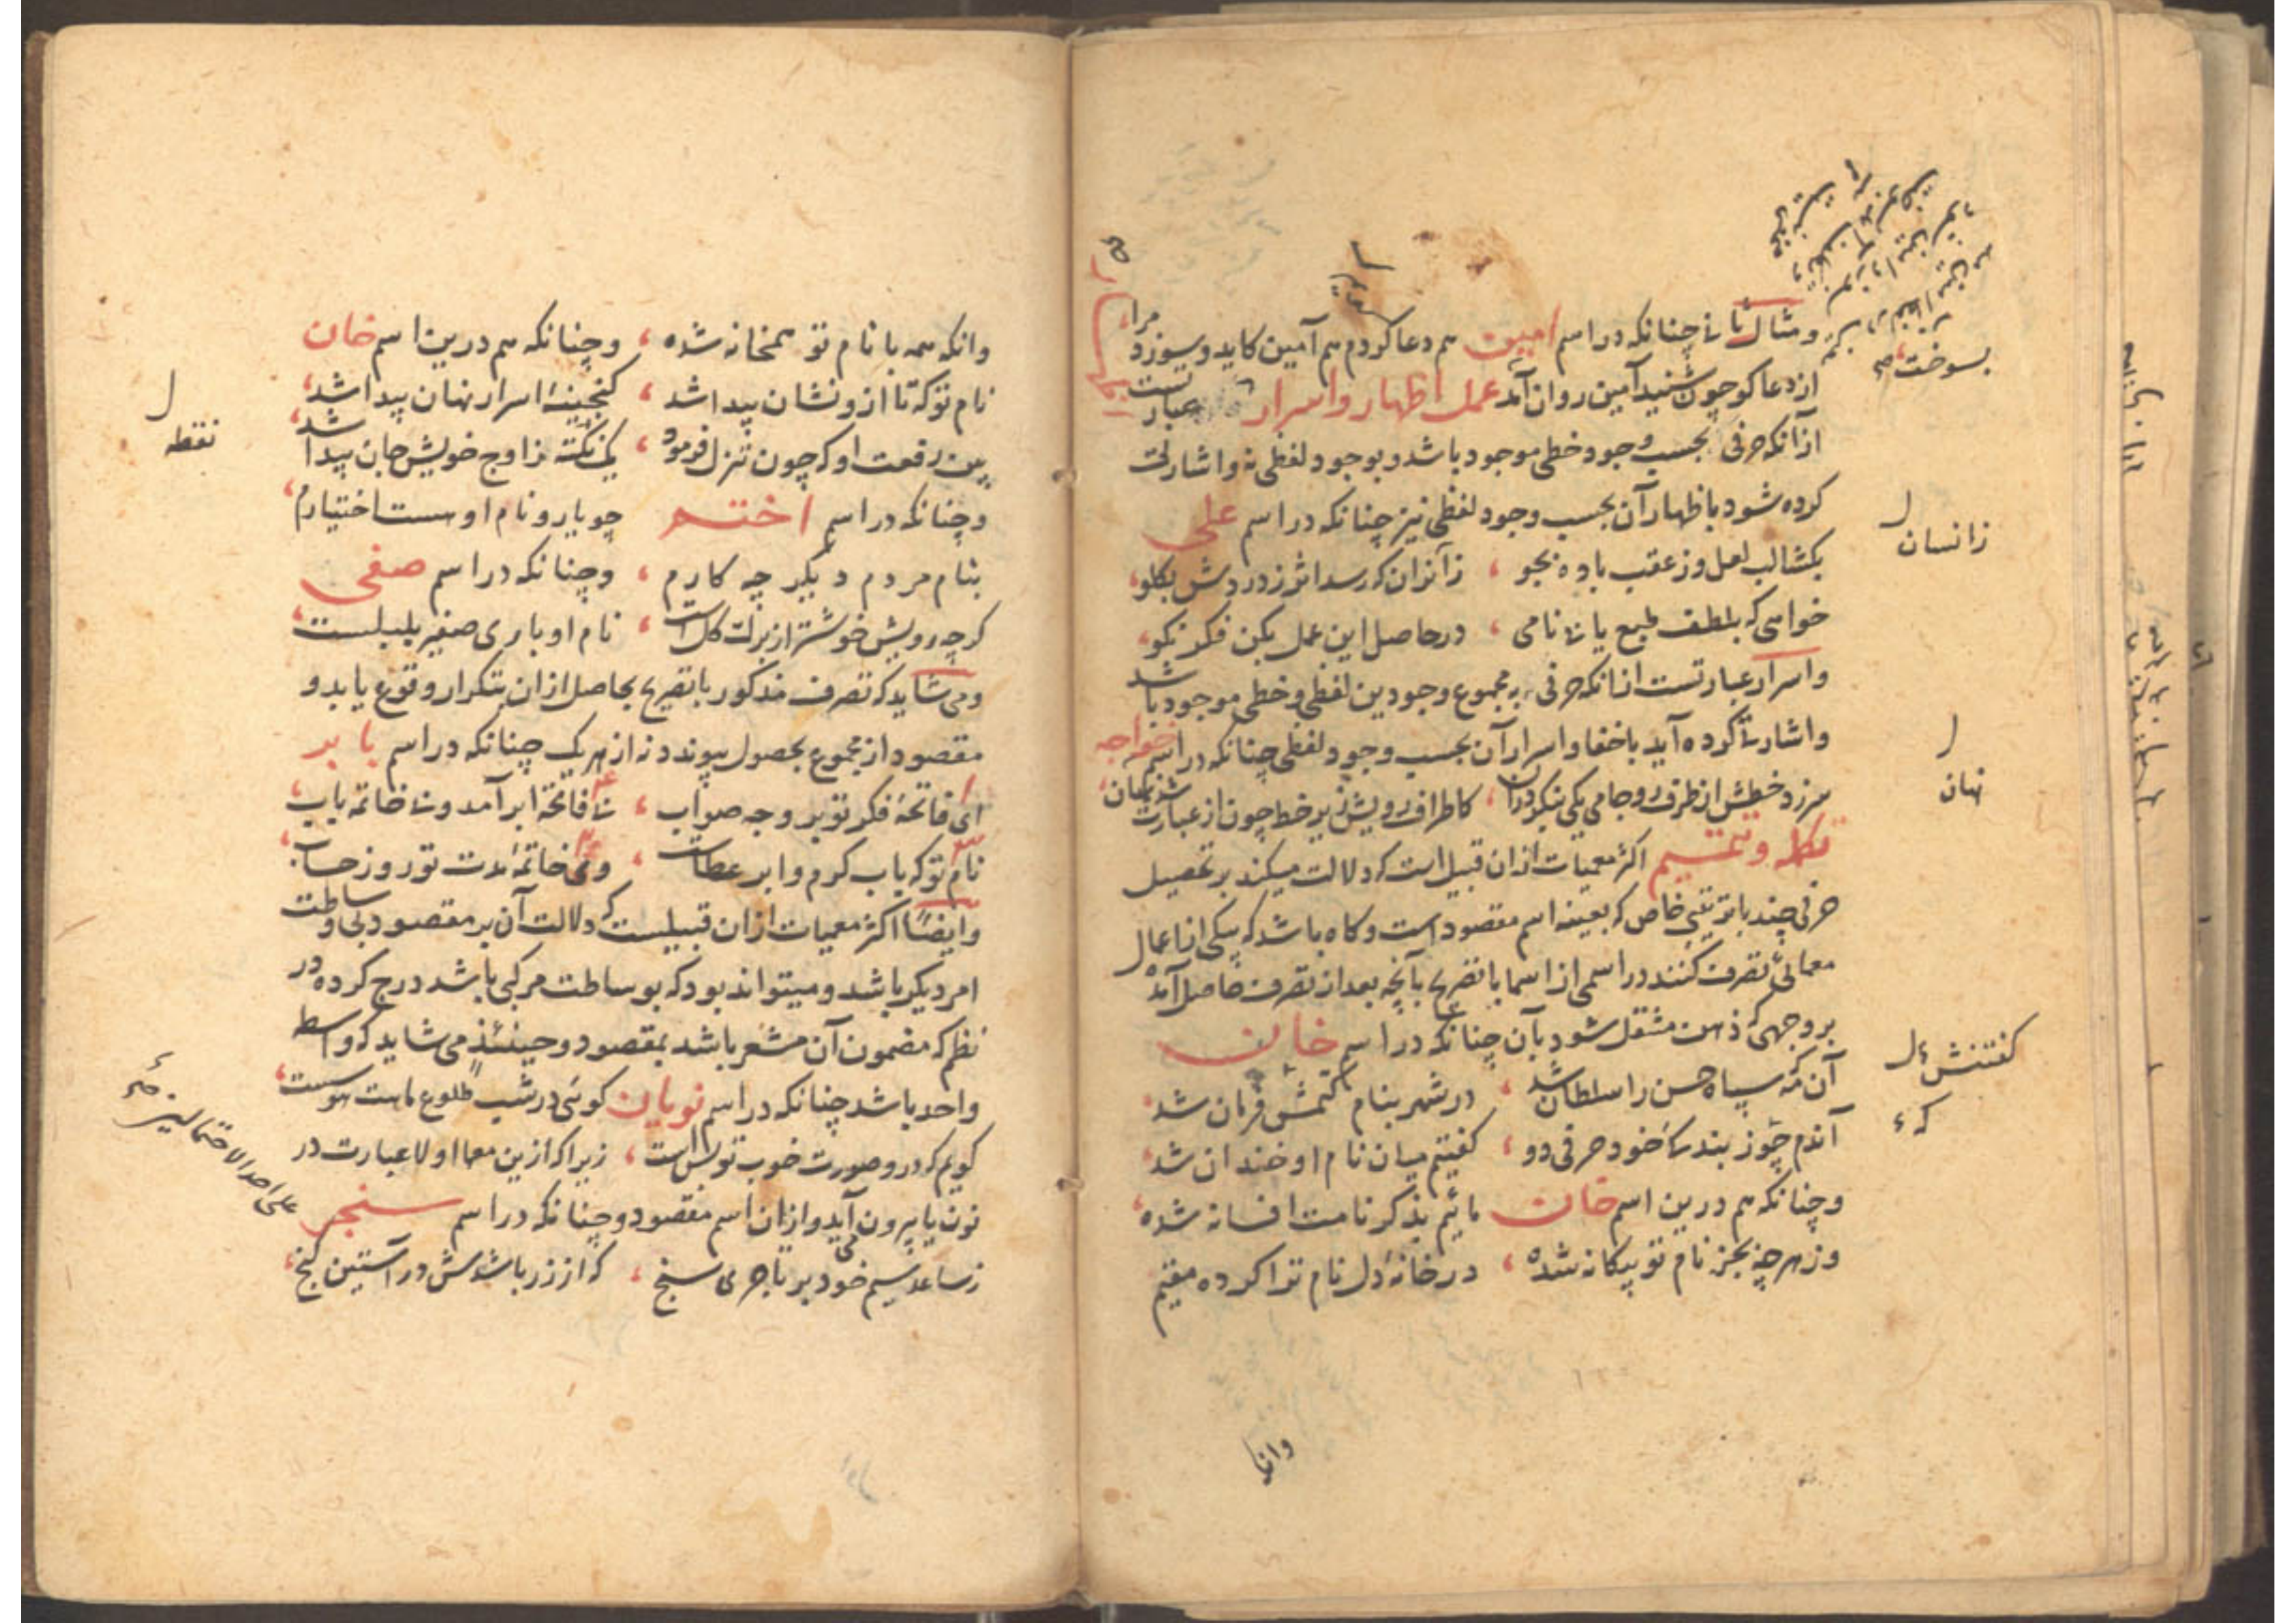 ومثال ثانی چنانکه در اسم امین هم دعا کردم هم آمین کاید و سوزد مرا
از دعا کو چون شنید آمین روان آمد عمل اظهار و اسرار عبارتست
از آنکه حرفی بحسب وجود خطی موجود باشد و بوجود لفظی نه و اشارت
کرده شود باظهار آن بحسب وجود لفظی نیز چنانکه در اسم علی
بکشا لب لعل وز عقب باده بجو ، زآنزان که رسد اثر ز دردش بکلو
خواهی که بلطف طبع یابی نامی ، در حاصل این عمل بکن فکر نکو
و اسرار عبارتست از انکه حرفی به مجموع وجودین لفظی و خطی موجود باشد
و اشارتی کرده آید باخفا و اسرار آن بحسب وجود لفظی چنانکه در اسم خواجه
سر زد خطش از طرف رو جامی یکی بنکر دران ، کاطراف رویش زیر خط چون از عبارت شد نهان
تکمله و تتمیم اکثر معمیات ازان قبیل است که دلالت میکند بر تحصیل
حرفی چند بترتیبی خاص که بعینه اسم مقصود است و کاه باشد که بیکی از اعمال
معمائی تصرف کنند در اسمی از اسما با تصریح بآنچه بعد از تصرف حاصل آمده
بر وجهی که ذهن منتقل شود بآن چنانکه در اسم خان
آن مه که سپاه حسن را سلطان شد ، در شهر بنام کفتمش فرمان شد
آندم چو ز بندکان خود حرفی دو ، کفتیم میان نام او خندان شد
و چنانکه هم درین اسم خان مائیم بذکر نامت افسانه شده
وز هر چه بجز نام تو بیکانه شده ، در خانهٔ دل نام ترا کرده مقیم
وانکه
بسوخت
زانسان
نهان
کفتنش
که
وانکه همه با نام تو همخانه شده ، و چنانکه هم درین اسم خان
نام تو که تا ازو نشان پیدا شد ، کنجینهٔ اسرار نهان پیدا شد
بین رفعت او که چون تنزل فرمود ، یک نکته ز اوج خویش جان پیدا شد
و چنانکه در اسم اختم چو یار و نام اوست اختیارم
بنام مردم دیکر چه کارم ، و چنانکه در اسم صفی
کرچه رویش خوشتر از برک کل است ، نام او باری صفیر بلبلست
و می شاید که تصرف مذکور با تصریح بحاصل ازان بتکرار وقوع یابد و
مقصود از مجموع بحصول پیوندد نه از هر یک چنانکه در اسم بابر
ای فاتحهٔ فکر تو بر وجه صواب ، نی فاتحهٔ ابر آمد و نی خاتمه باب
نام تو که باب کرم و ابر عطاست ، و نی خاتمهٔ مدت تو روز حساب
و ایضاً اکثر معمیات ازان قبیلست که دلالت آن بر مقصود بی وساطت
امر دیکر باشد و میتواند بود که بوساطت مرکبی باشد درج کرده در
نظم که مضمون آن مشعر باشد بمقصود و حینئذ می شاید که واسطه
واحد باشد چنانکه در اسم نویان کوئی در شب طلوع ماهت هوسست
کویم که در و صورت خوب تو بس است ، زیرا که ازین معما اولا عبارت در
نون یا بیرون آید و ازان اسم مقصود و چنانکه در اسم سنجر
ز ساعد سیم خود بر تاجر می سنج ، که از زر باشدش در آستین کنج
نقطه
علی احد الاحتمالین